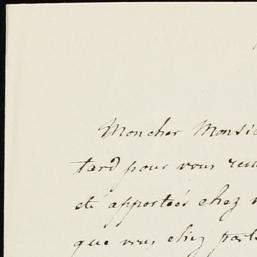 Mon cher Monsie
tard pour vous rem
eté apportées chez
que vous étiez parti